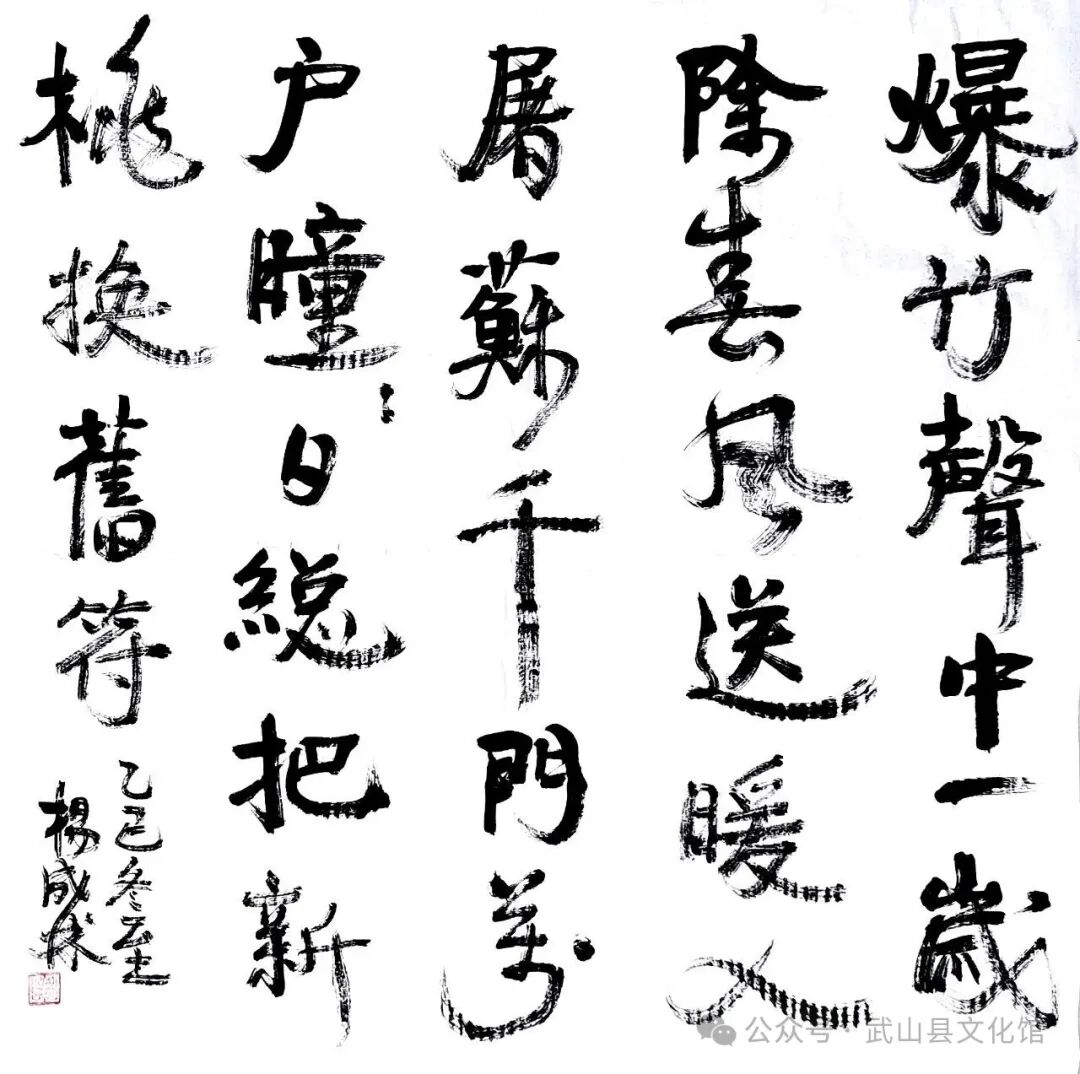 爆竹聲中一歲
除春風送暖入
屠蘇千門萬
户曈〻日總把新
桃換舊符
乙巳冬至
楊成林
公众号 · 武山县文化馆